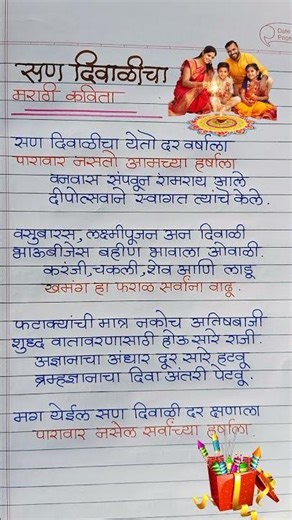 Date
Page
सण दिवाळीचा
मराठी कविता
सण दिवाळीचा येतो दर वर्षाला
पारावार नसतो आमच्या हर्षाला
वनवास संपवून रामराय आले
दीपोत्सवाने स्वागत त्यांचे केले.
वसुबारस, लक्ष्मीपूजन अन दिवाळी
भाऊबीजेस बहीण भावाला ओवाळी.
करंजी, चकली, शेव आणि लाडू
खमंग हा फराळ सर्वांना वाढू.
फटाक्यांची मात्र नकोच अतिषबाजी
शुध्द वातावरणासाठी होऊ सारे राजी.
अज्ञानाचा अंधार दूर सारे हटवू
ब्रम्हज्ञानाचा दिवा अंतरी पेटवू.
मग येईल सण दिवाळी दर क्षणाला
पारावार नसेल सर्वांच्या हर्षाला.